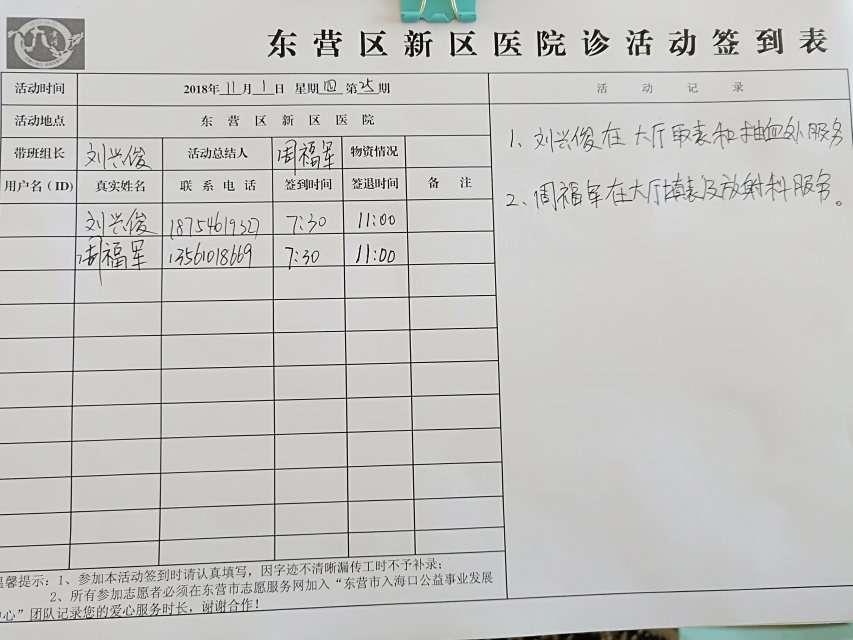 东营区新区医院诊活动签到表
活动时间 2018年11月1日 星期四 第25期 活动记录
活动地点 东营区新区医院
带班组长 刘兴俊 活动总结人 周福军 物资情况
用户名(ID) 真实姓名 联系电话 签到时间 签退时间 备注
刘兴俊 18754619327 7:30 11:00
周福军 13561018669 7:30 11:00
1、刘兴俊在大厅取表和抽血处服务
2、周福军在大厅填表及放射科服务。
温馨提示:1、参加本活动签到时请认真填写,因字迹不清晰漏传工时不予补录;
2、所有参加志愿者必须在东营市志愿服务网加入“东营市入海口公益事业发展
中心”团队记录您的爱心服务时长,谢谢合作!